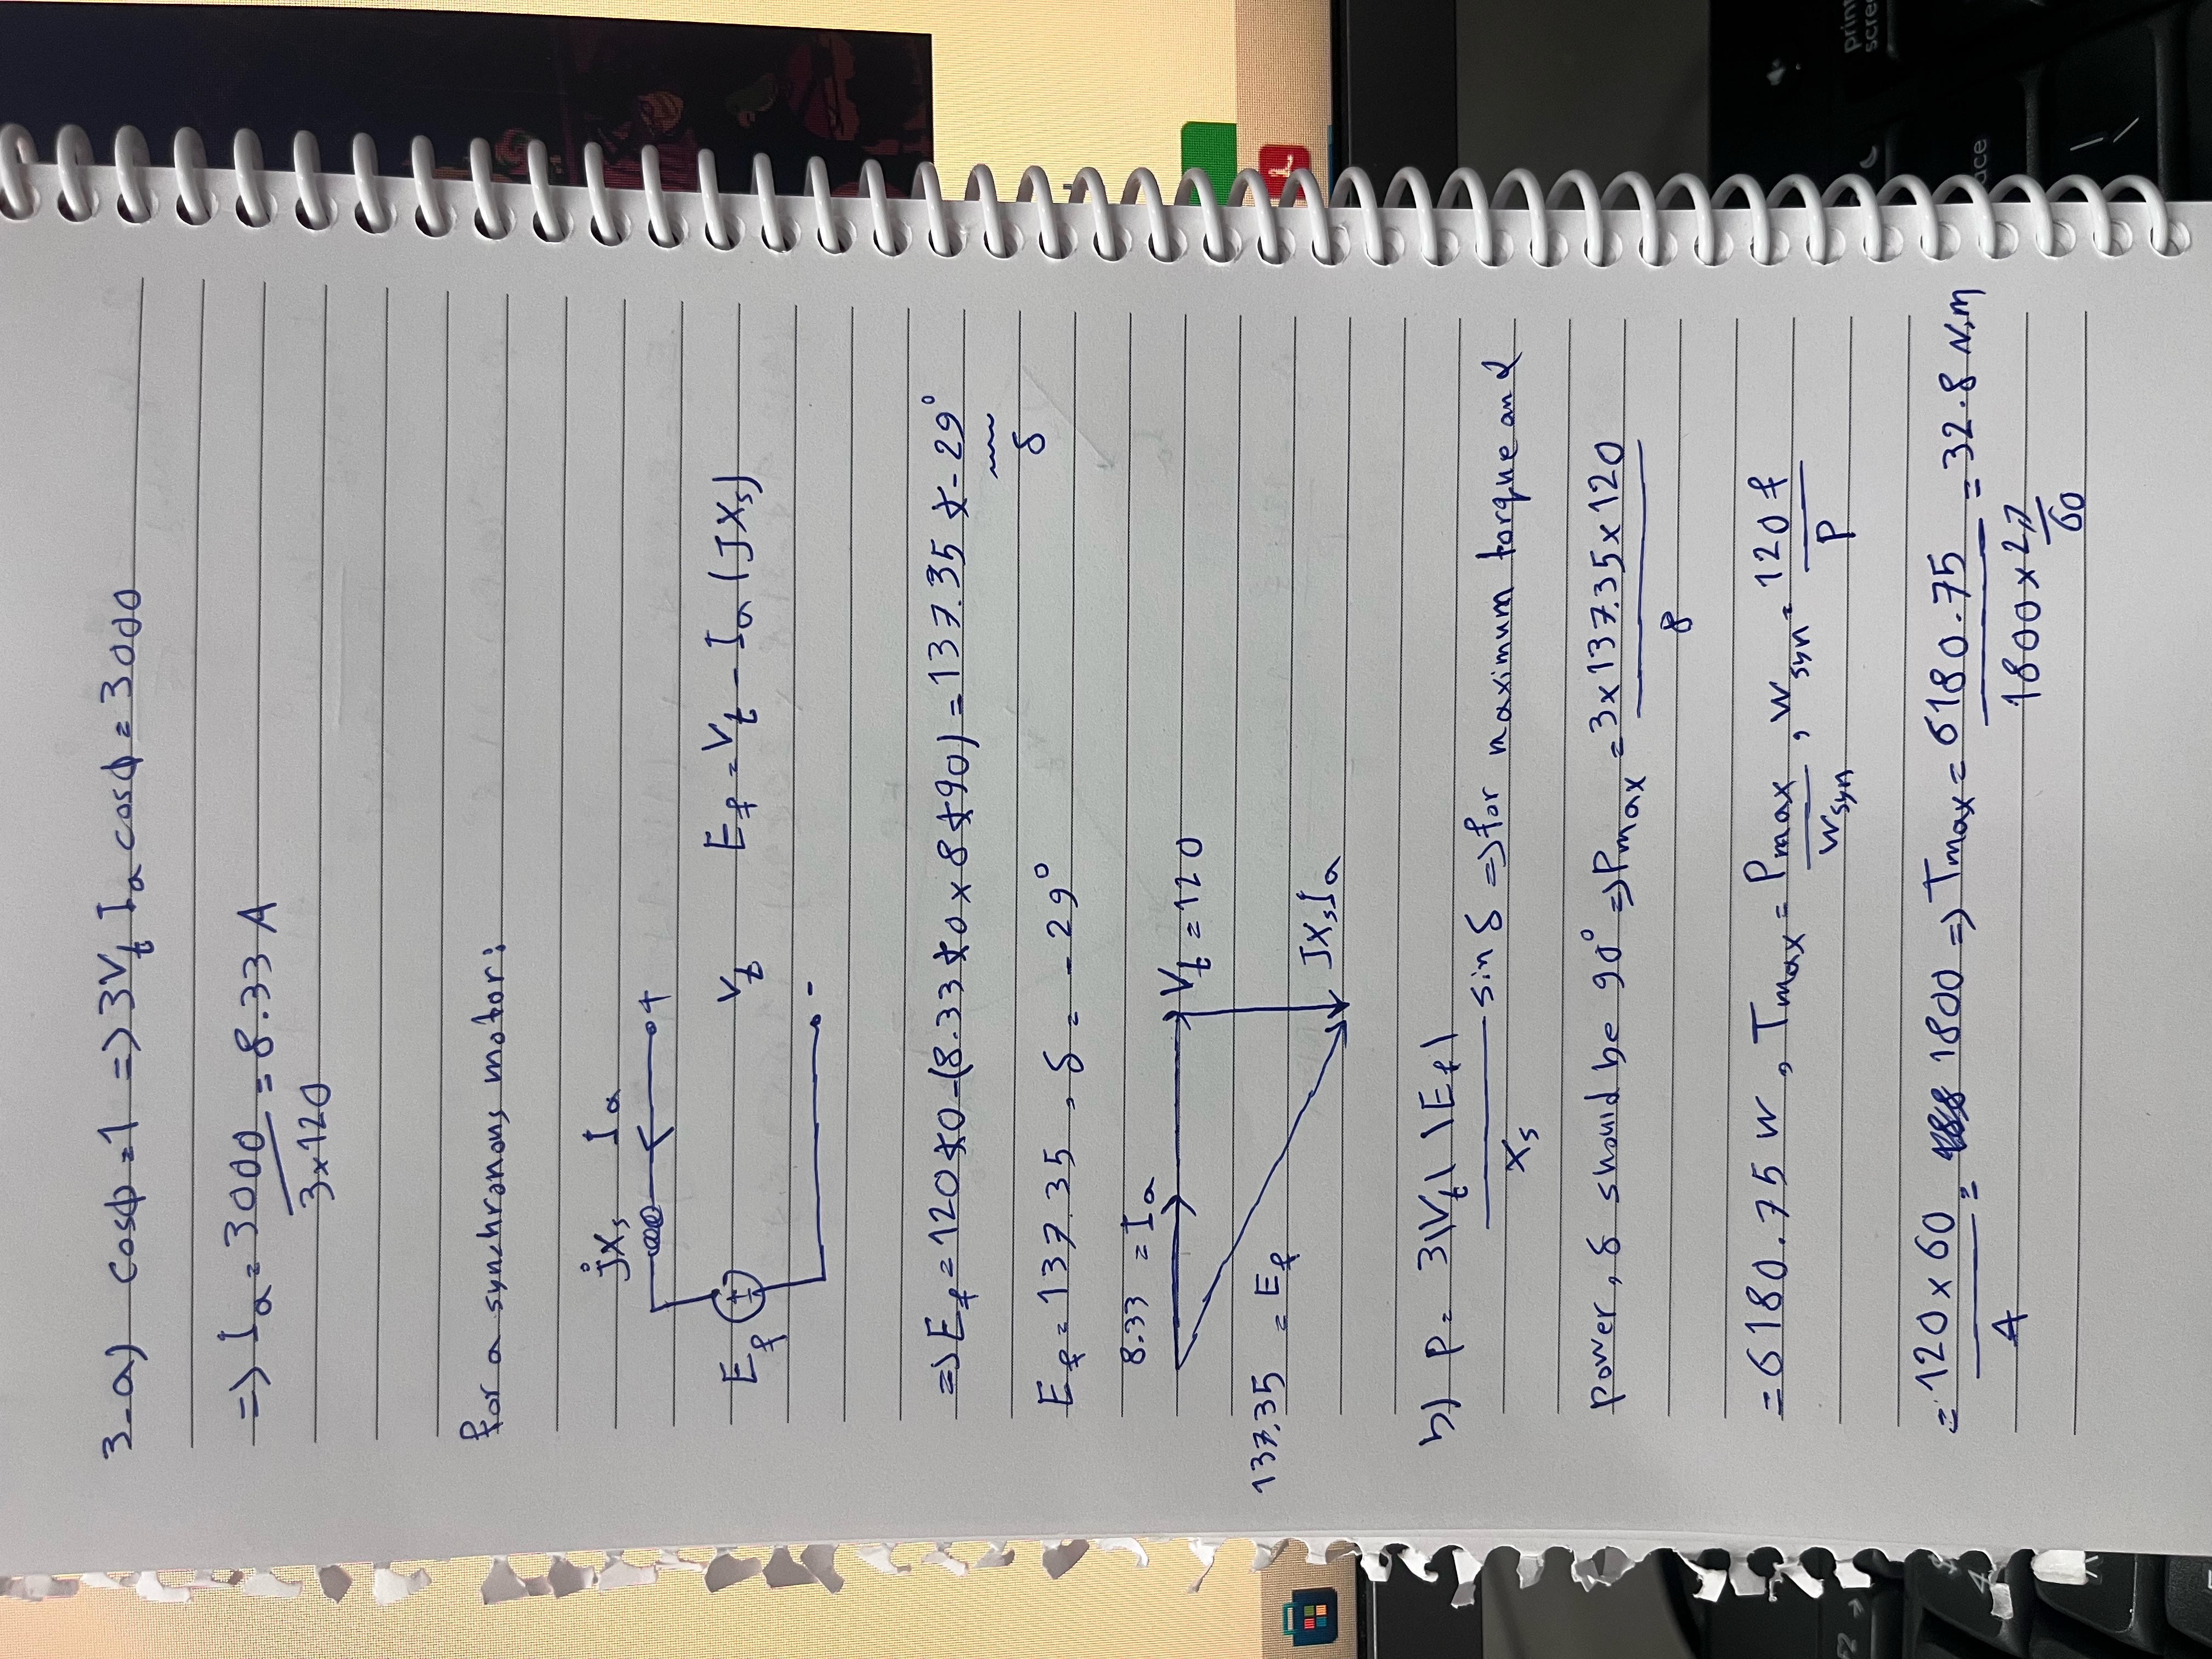 3-a) cosϕ = 1 => 3V_t I_a cosϕ = 3000
=> I_a = 3000/(3×120) = 8.33 A
for a synchronous motor:
jX_s I_a
+
E_f + - V_t E_f = V_t - I_a (JX_s)
-
=> E_f = 120∡0 - (8.33∡0 × 8∡90) = 137.35 ∡-29°
δ
E_f = 137.35 , δ = -29°
8.33 = I_a
V_t = 120
137.35 = E_f
JX_sI_a
b) P = 3|V_t| |E_f| / X_s sin δ => for maximum torque and
power, δ should be 90° => P_max = 3×137.35×120 / 8
= 6180.75 W , T_max = P_max / w_syn , w_syn = 120 f / P
= 120×60 / 4 = 1800 => T_max = 6180.75 / (1800 × 2π/60) = 32.8 N.m
F2
4
print
scre
ace